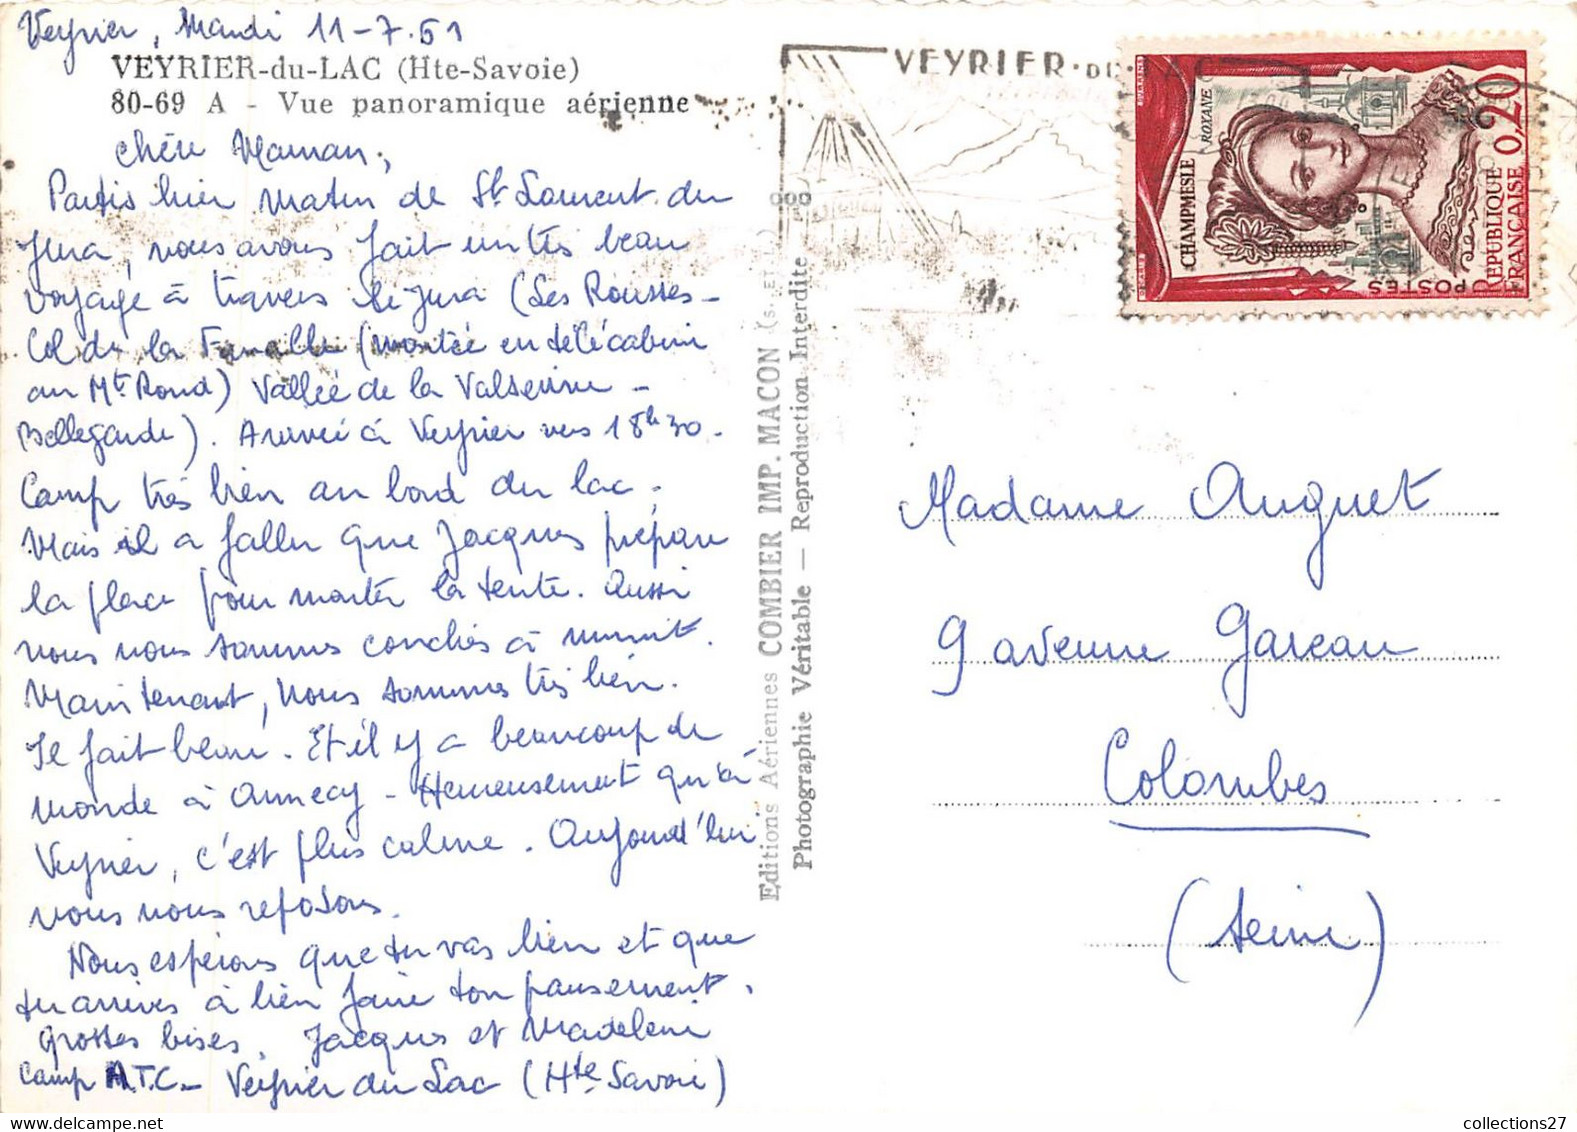 Veyrier, Mardi 11-7.61
VEYRIER-du-LAC (Hte-Savoie)
80-69 A - Vue panoramique aérienne
Chère Maman,
Partis hier matin de St Laurent du
Jura, nous avons fait un très beau
voyage à travers le Jura (Les Rousses -
Col de la Faucille (montée en télécabine
au Mt Rond) Vallée de la Valserine -
Bellegarde). Arrivée à Veyrier vers 18h30.
Camp très bien au bord du lac.
Mais il a fallu que Jacques prépare
la place pour monter la tente. Aussi
nous nous sommes couchés à minuit.
Maintenant, nous sommes très bien.
Il fait beau. Et il y a beaucoup de
monde à Annecy - Heureusement qu'à
Veyrier, c'est plus calme. Aujourd'hui
nous nous reposons.
Nous espérons que tu vas bien et que
tu arrives à bien faire ton pansement.
Grosses bises. Jacques et Madeleine
Camp A.T.C - Veyrier du Lac (Hte Savoie)
Editions Aériennes COMBIER IMP. MACON (S. ET L.)
Photographie Véritable — Reproduction Interdite
VEYRIER·DU·LAC
CHAMPMESLÉ
ROXANE
POSTES
REPUBLIQUE FRANÇAISE
0,20
Madame Auguet
9 avenue Gareau
Colombes
(Seine)
collections27